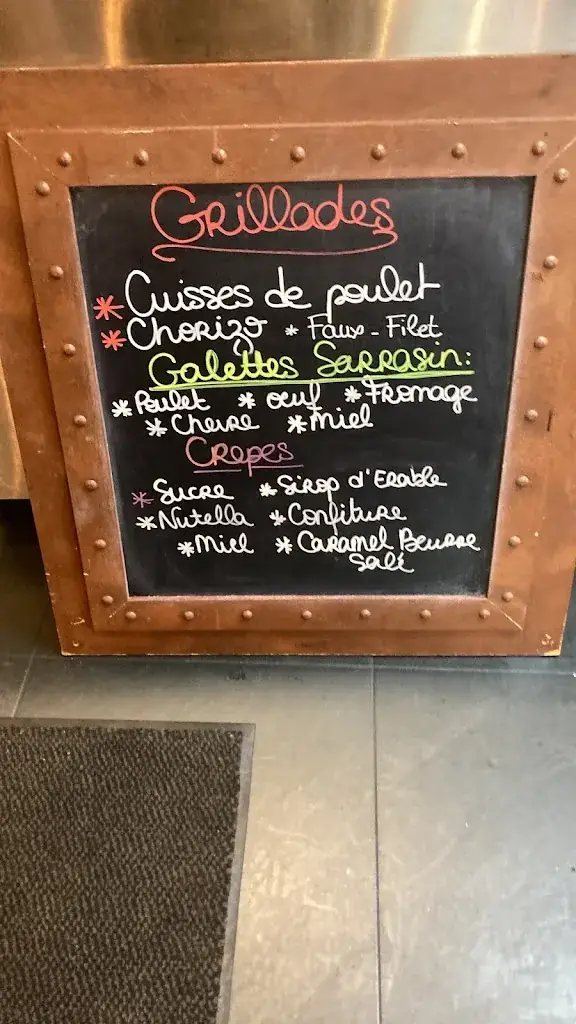 Grillades
* Cuisses de poulet
* Chorizo * Faux-Filet
Galettes Sarrasin:
* Poulet * oeuf * Fromage
* Chevre * miel
Crepes
* Sucre * Sirop d'Erable
* Nutella * Confiture
* Miel * Caramel Beurre
Salé